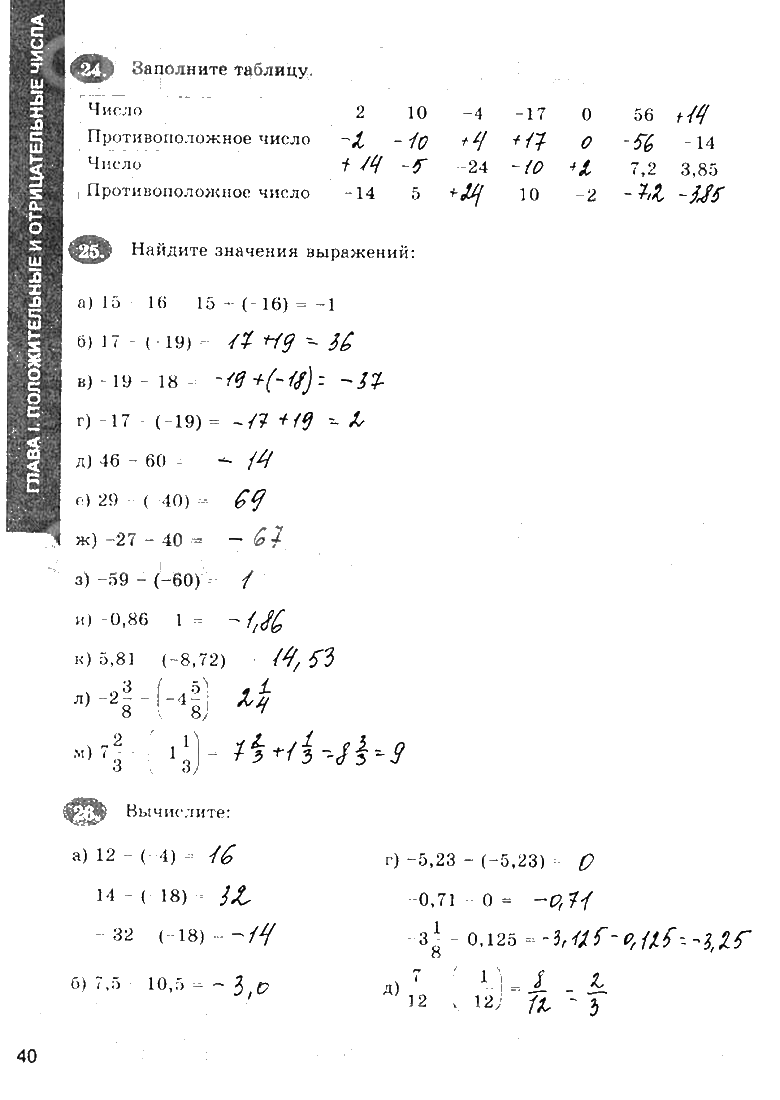 ГЛАВА I. ПОЛОЖИТЕЛЬНЫЕ И ОТРИЦАТЕЛЬНЫЕ ЧИСЛА
24. Заполните таблицу.
Число 2 10 -4 -17 0 56 +14
Противоположное число -2 -10 +4 +17 0 -56 -14
Число +14 -5 -24 -10 +2 7,2 3,85
Противоположное число -14 5 +24 10 -2 -7,2 -3,85
25. Найдите значения выражений:
а) 15 16 15 - (-16) = -1
б) 17 - (-19) - 17 +19 = 36
в) -19 - 18 - -19 +(-18) = -37
г) -17 - (-19) = -17 +19 = 2
д) 46 - 60 - - 14
е) 29 - ( 40) = 69
ж) -27 - 40 = - 67
з) -59 - (-60) = 1
и) -0,86 1 = -1,86
к) 5,81 (-8,72) 14,53
л) -2 3/8 - (-4 5/8) 2 1/4
м) 7 2/3 ( 1 1/3) - 7 2/3 +1 1/3 = 8 3/3 = 9
Вычислите:
а) 12 - (-4) = 16
14 - ( 18) = 32
- 32 (-18) - -14
б) 7,5 10,5 = - 3,0
г) -5,23 - (-5,23) = 0
-0,71 - 0 = -0,71
-3 1/8 - 0,125 = -3,125 -0,125 = -3,25
д) 7/12 ( 1/12) = 8/12 = 2/3
40